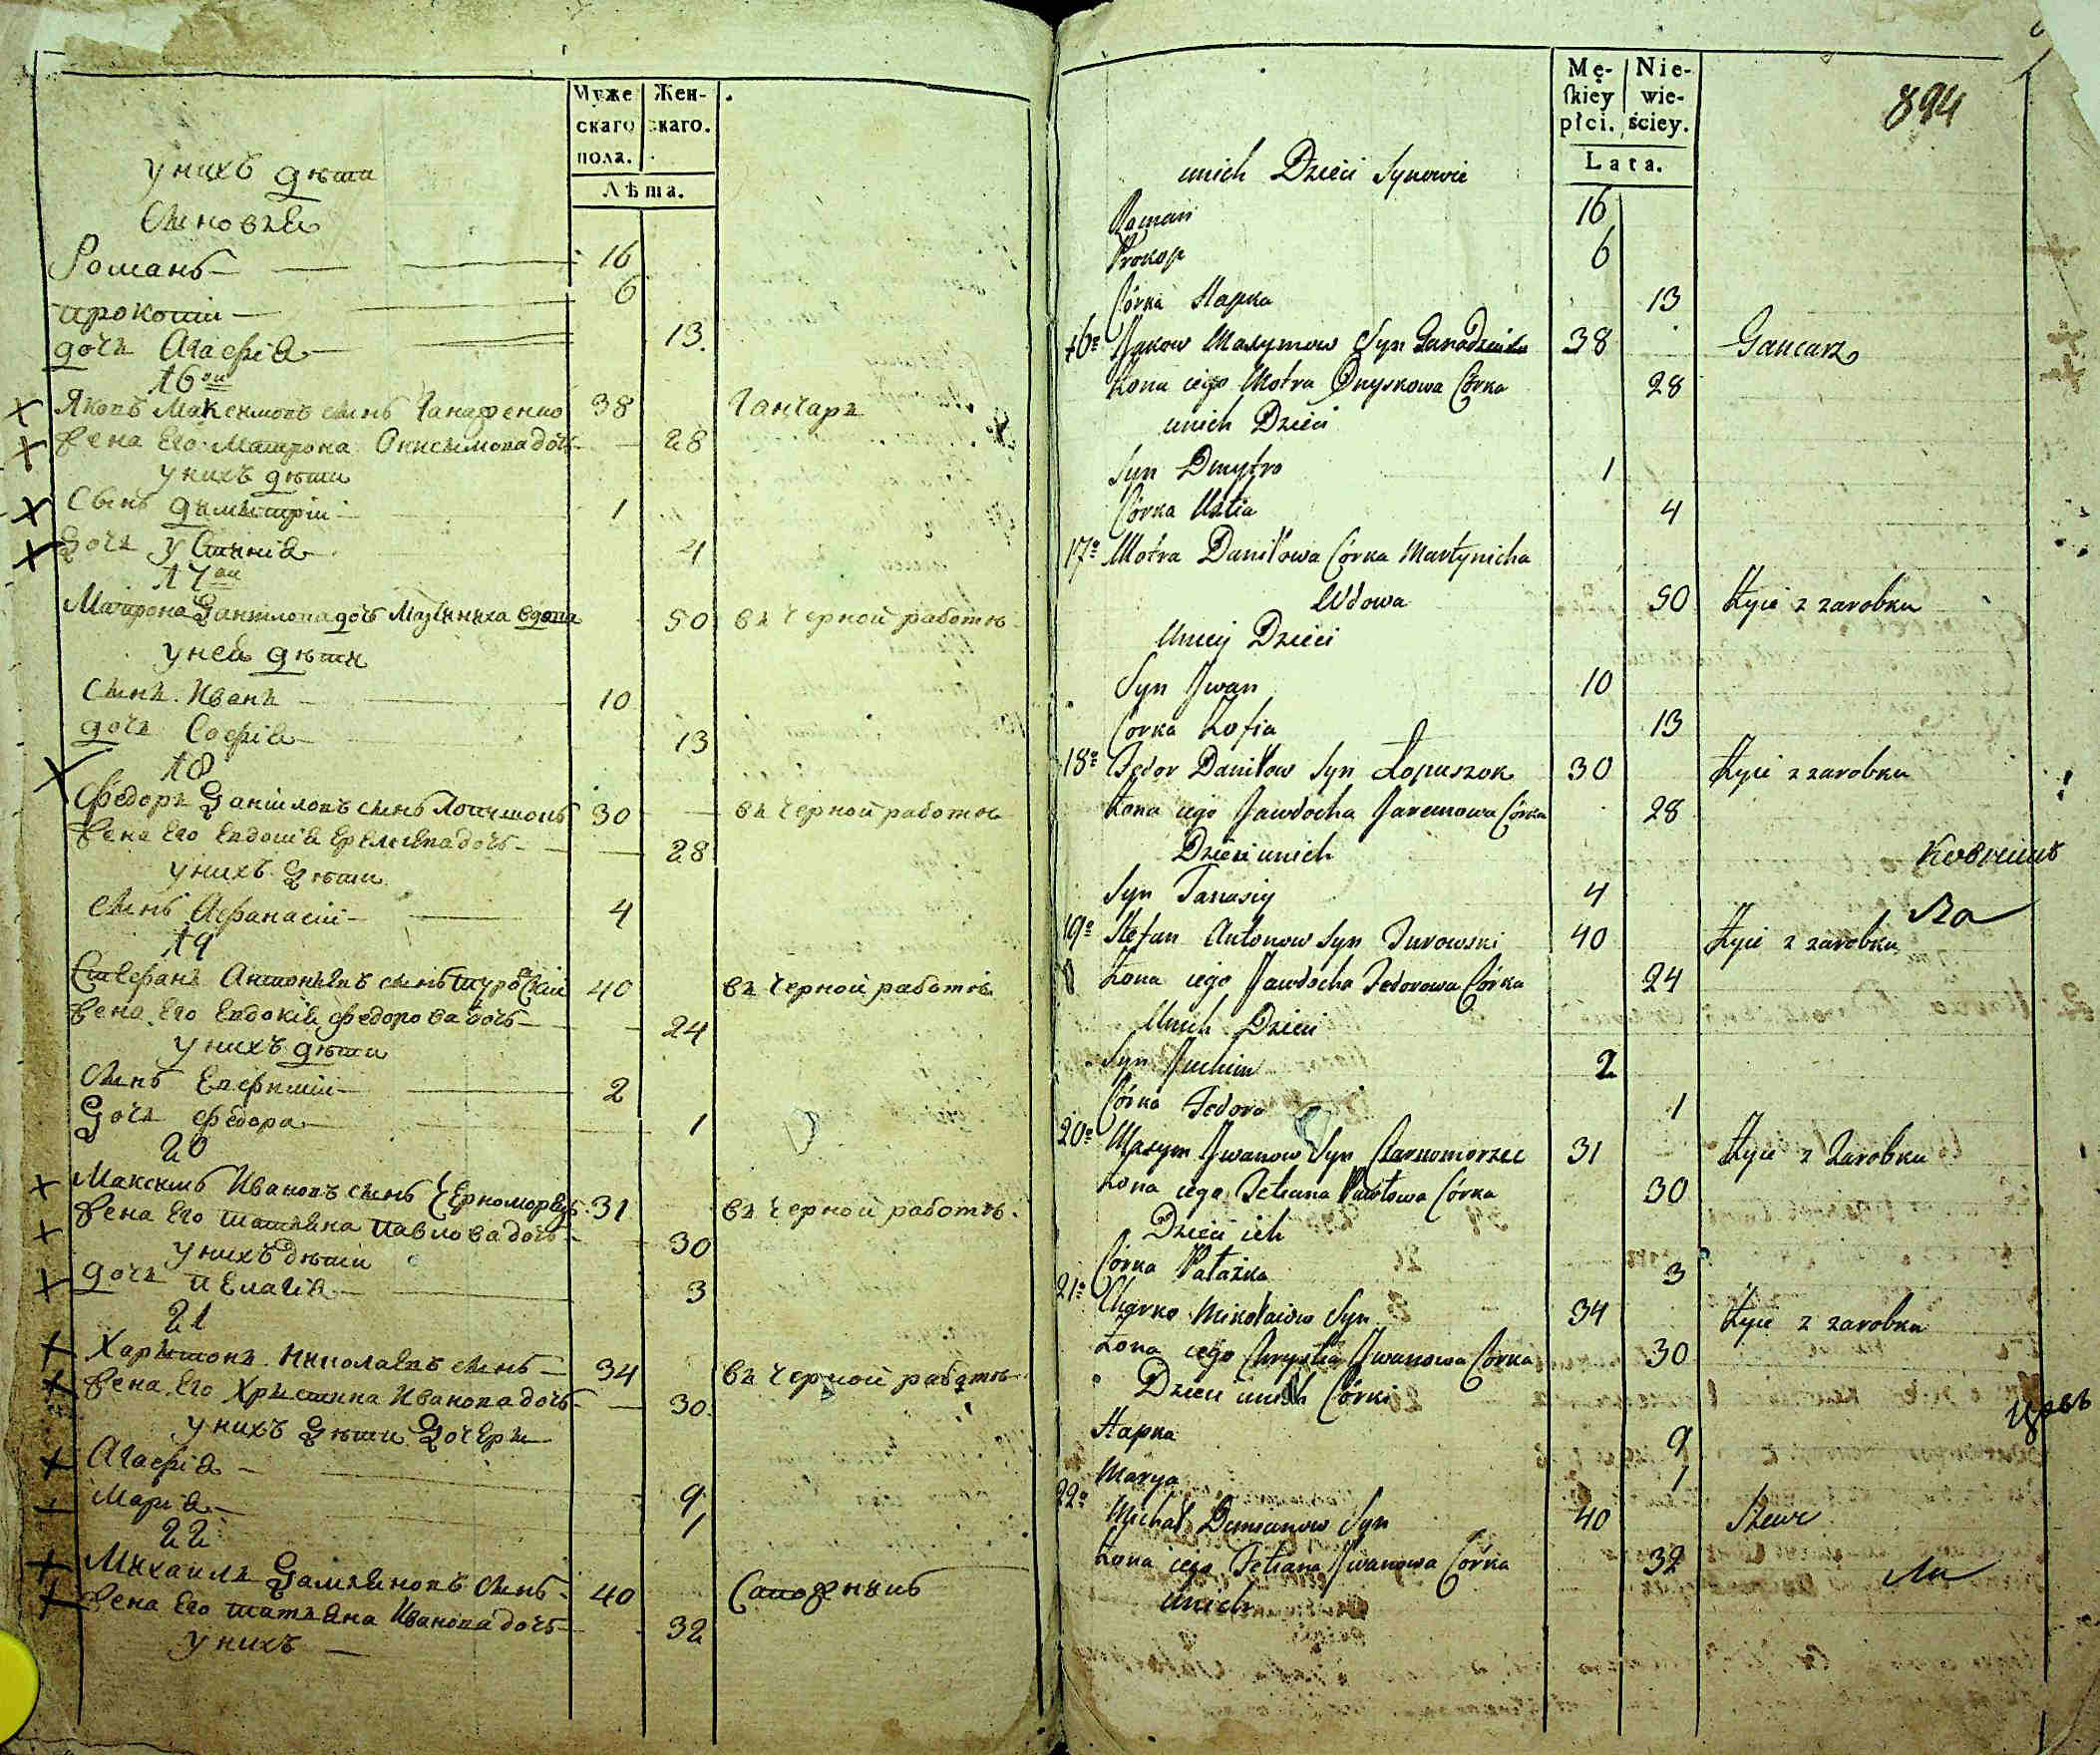 Муже
скаго
пола.
Жен-
скаго.
Лѣта.
у нихъ дѣти
Сыновья
Романъ 16
Прокопій 6
дочь Агафія 13
16ои
Яковъ Максимовъ сынъ 38 Ганчаръ
Жена Его Матрона Онисимова дочь 28
у нихъ дѣти
Сынъ Димитрій 1
Дочь Устинія 4
17ои
Матрона Данилова дочь вдова 50 въ Черной работѣ
у ней дѣти
Сынъ Иванъ 10
дочь Софія 13
18
Федоръ Даниловъ сынъ 30 въ Черной работѣ
Жена Его Евдокія Еремѣева дочь 28
у нихъ Дѣти
Сынъ Афанасій 4
19
Стефанъ Антоновъ сынъ Туровскій 40 въ Черной работѣ
Жена Его Евдокія Федорова дочь 24
у нихъ дѣти
Сынъ Евфимій 2
Дочь Федора 1
20
Максимъ Ивановъ сынъ Черноморецъ 31 въ Черной работѣ
Жена Его Татьяна Павлова дочь 30
у нихъ дѣти
дочь Пелагія 3
21
Харитонъ Николаевъ сынъ 34 въ Черной работѣ
Жена Его Христина Иванова дочь 30
у нихъ Дѣти Дочери
Агафія 9
Марія 1
22
Михаилъ Даміановъ Сынъ 40 Сапожникъ
Жена Его Татьяна Иванова дочь 32
у нихъ
Mę-
skiey
płci.
Nie-
wie-
ściey.
Lata.
894
unich Dzieci Synowie
Roman 16
Prokop 6
Córka Hapka 13
16o Jakow Maxymow Syn 38 Gancarz
Żona iego Motra Onyskowa Córka 28
unich Dzieci
Syn Dmytro 1
Córka Ustia 4
17o Motra Daniłowa Córka Martynicha
Wdowa 50 Żyie z zarobku
Uniey Dzieci
Syn Jwan 10
Corka Zofia 13
18o Fedor Daniłow Syn Łopuszok 30 Żyie z zarobku
Żona iego Jawdocha Jaremowa Córka 28
Dzieci unich
Syn Tanasiy 4
19o Stefan Antonow Syn Turowski 40 Żyie z zarobku
Żona iego Jawdocha Fedorowa Córka 24
Unich Dzieci
Syn Juchim 2
Córka Fedora 1
20o Maxym Jwanow Syn Czarnomorzec 31 Żyie z Zarobku
Żona iego Tetiana Pawłowa Córka 30
Dzieci ich
Córka Pałażka 3
21o Charko Mikołaiow Syn 34 Żyie z zarobku
Żona iego Chrystia Jwanowa Córka 30
Dzieci unich Córki
Hapka 9
Marya 1
22o Michał Demianow Syn 40 Szewc
Żona iego Tetiana Jwanowa Córka 32
Unich